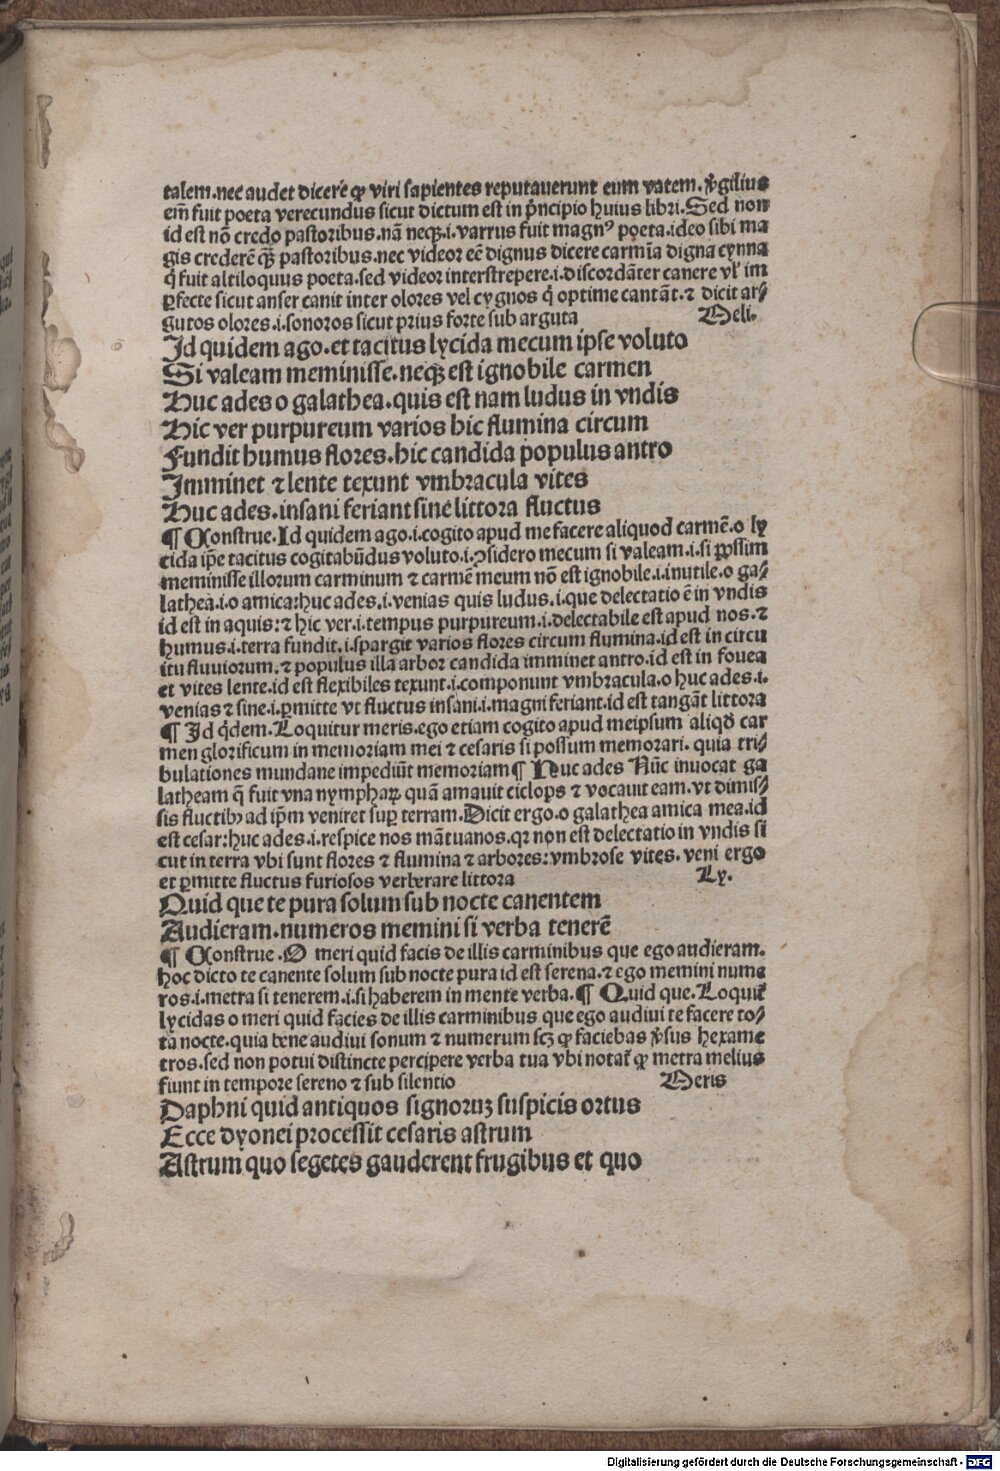 talem.nec audet dicere ꝙ viri sapientes reputauerunt eum vatem.v̉gilius
em̄ fuit poeta verecundus sicut dictum est in p̉ncipio huius libri.Sed non
id est nō credo pastoribus.nā neqꝫ.i.varrus fuit magnꝰ poeta.ideo sibi ma
gis crederē qꝫ̄ pastoribus.nec videor eē dignus dicere carmīa digna cynna
q̉ fuit altiloquus poeta.sed videor interstrepere.i.discordāter canere vl̓ im
ꝑfecte sicut anser canit inter olores vel cygnos q̉ optime cantāt.⁊ dicit ar⸗
gutos olores.i.sonoros sicut prius forte sub arguta Meli.
Id quidem ago.et tacitus lycida mecum ipse voluto
Si valeam meminisse.neqꝫ est ignobile carmen
Huc ades o galathea.quis est nam ludus in vndis
Hic ver purpureum varios hic flumina circum
Fundit humus flores.hic candida populus antro
Imminet ⁊ lente texunt vmbracula vites
Huc ades.insani feriant sine littora fluctus
¶ Construe.Id quidem ago.i.cogito apud me facere aliquod carmē.o ly
cida ip̄e tacitus cogitabūdus voluto.i.ↄsidero mecum si valeam.i.si ꝓssim
meminisse illorum carminum ⁊ carmē meum nō est ignobile.i.inutile.o ga⸗
lathea.i.o amica:huc ades.i.venias quis ludus.i.que delectatio ē in vndis
id est in aquis:⁊ hic ver.i.tempus purpureum.i.delectabile est apud nos.⁊
humus.i.terra fundit.i.spargit varios flores circum flumina.id est in circu
itu fluuiorum.⁊ populus illa arbor candida imminet antro.id est in fouea
et vites lente.id est flexibiles texunt.i.componunt vmbracula.o huc ades.i.
venias ⁊ sine.i.ꝑmitte vt fluctus insani.i.magni feriant.id est tangāt littora
¶ Id q̉dem.Loquitur meris.ego etiam cogito apud meipsum aliqđ car
men glorificum in memoriam mei ⁊ cesaris si possum memorari.quia tri⸗
bulationes mundane impediūt memoriam ¶ Huc ades Nūc inuocat ga
latheam q̄ fuit vna nymphaꝝ quā amauit ciclops ⁊ vocauit eam.vt dimis⸗
sis fluctibꝰ ad ip̄m veniret suꝑ terram.Dicit ergo.o galathea amica mea.id
est cesar:huc ades.i.respice nos mātuanos.qꝛ non est delectatio in vndis si
cut in terra vbi sunt flores ⁊ flumina ⁊ arbores:vmbrose vites.veni ergo
et ꝑmitte fluctus furiosos verberare littora Ly.
Quid que te pura solum sub nocte canentem
Audieram.numeros memini si verba tenerē
¶ Construe.O meri quid facis de illis carminibus que ego audieram.
hoc dicto te canente solum sub nocte pura id est serena.⁊ ego memini nume
ros.i.metra si tenerem.i.si haberem in mente verba.¶ Quid que.Loquit᷑
lycidas o meri quid facies de illis carminibus que ego audiui te facere to⸗
ta nocte.quia bene audiui sonum ⁊ numerum scꝫ ꝙ faciebas v̉sus hexame
tros.sed non potui distincte percipere verba tua vbi notat᷑ ꝙ metra melius
fiunt in tempore sereno ⁊ sub silentio Meris
Daphni quid antiquos signoruꝫ suspicis ortus
Ecce dyonei processit cesaris astrum
Astrum quo segetes gauderent frugibus et quo
Digitalisierung gefördert durch die Deutsche Forschungsgemeinschaft - DFG